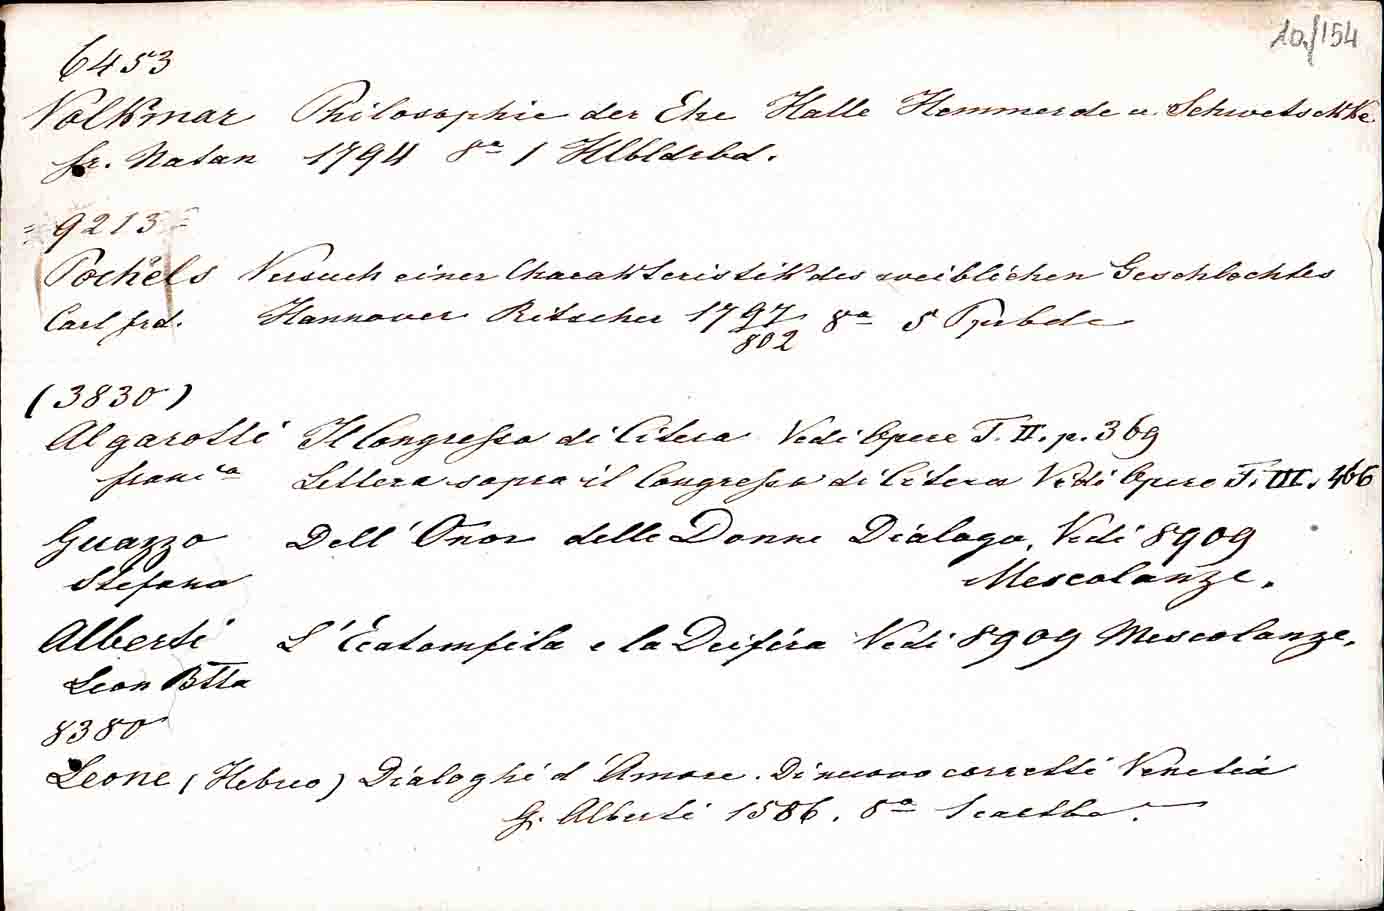 10./154
6453
Volkmar Philosophie der Ehe Halle Hemmerde u. Schwetschke
fr. Natan 1794 8º 1 Hlbldrbd.
9213
Pockels Versuch einer Charakteristik des weiblichen Geschlechtes
Carl frd. Hannover Ritscher 1797 8º 5 Ppbde
802
(3830)
Algarotti Il Congresso di Citera Vedi Opere T. II. p. 369
franco Lettera sopra il Congresso di Citera Vedi Opere T. III. 466
Guazzo Dell' Onor delle Donne Dialogo. Vedi 8909
Stefano Mescolanze.
Alberti L' Ecatomfila e la Deifira Vedi 8909 Mescolanze.
Leon Btta
8380
Leone (Hebreo) Dialoghi d'Amore. Di nuovo corretti Venetia
G. Alberti 1586. 8º 1